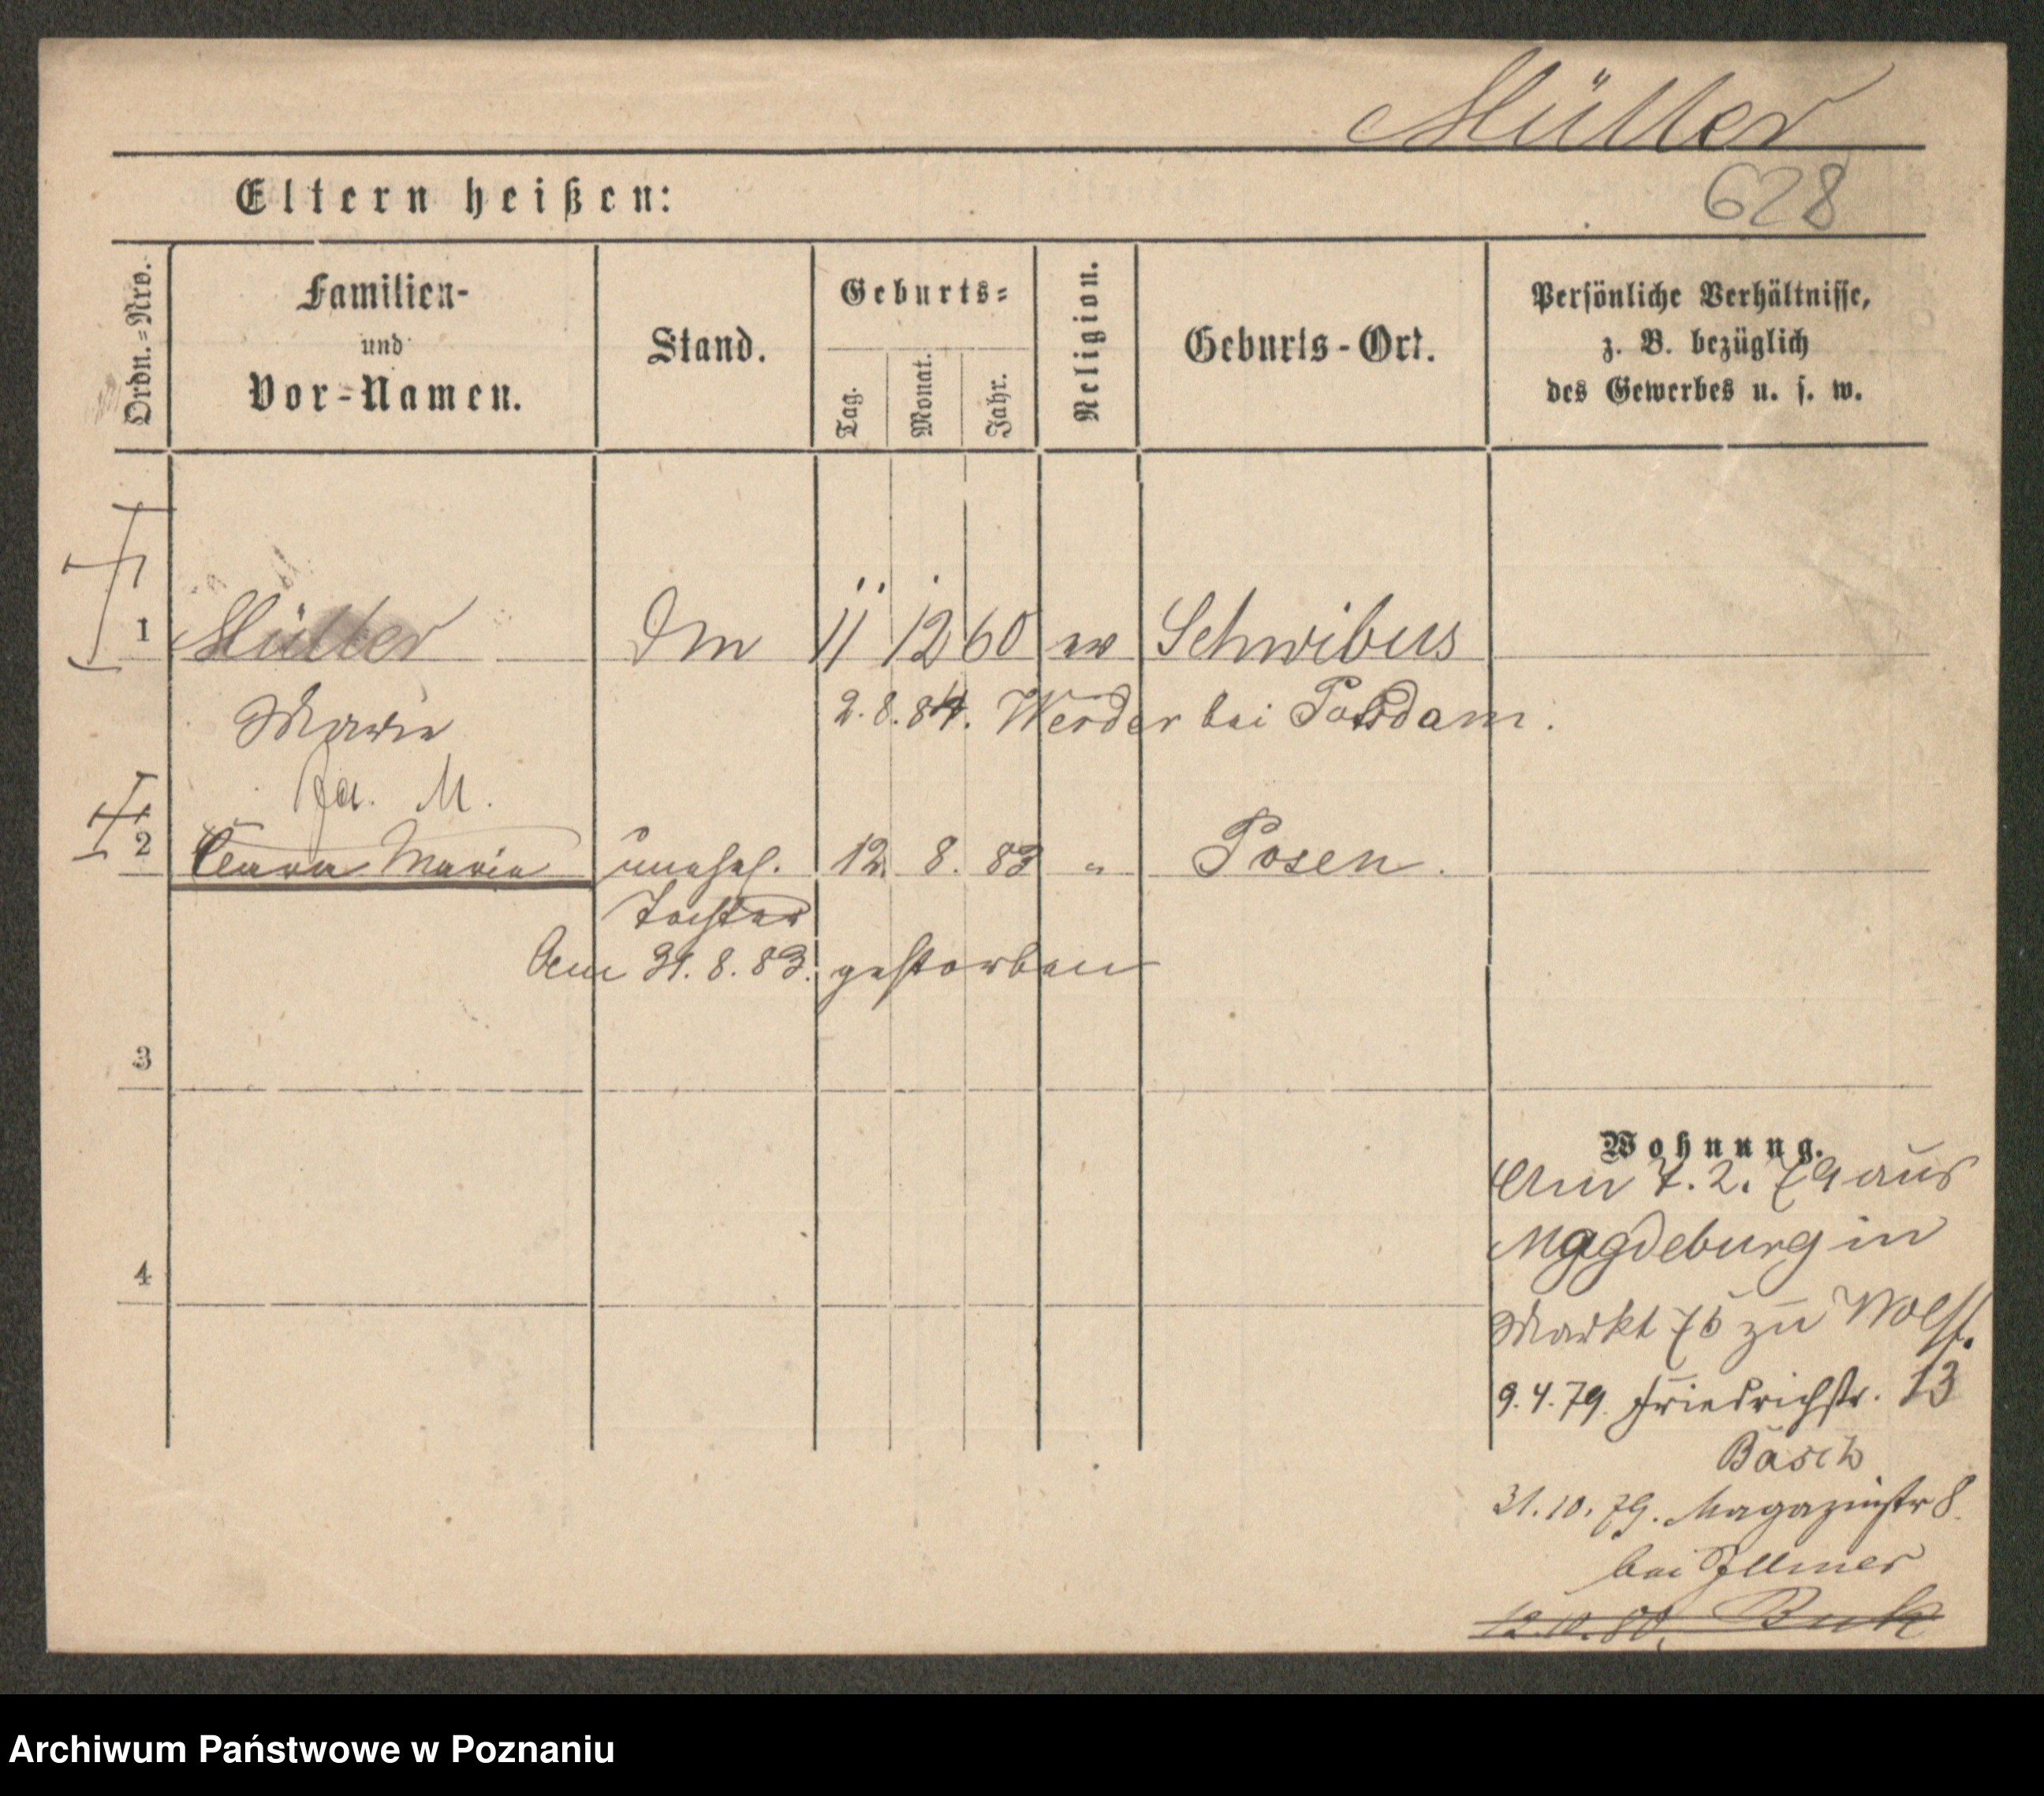 Müller
Eltern heißen:
628
Ordn.=Nro.
Familien-
und
Vor-Namen.
Stand.
Geburts=
Tag.
Monat.
Jahr.
Religion.
Geburts-Ort.
Persönliche Verhältnisse,
z. B. bezüglich
des Gewerbes u. s. w.
1 Müller 11 12 60 ev Schwibus
Marie
2.8.84. Werder bei Potsdam.
M.
2 Clara Marie unehel. 12. 8. 83 " Posen.
Tochter
Am 31.8.83. gestorben
3
4
Wohnung.
Am 7.2.79 aus
Magdeburg in
Markt 76 zu Wolff.
9.4.79. Friedrichstr. 13
Basch
31.10.79. Magazinstr 8.
bei Illmer
12.10.80. Buk
Archiwum Państwowe w Poznaniu